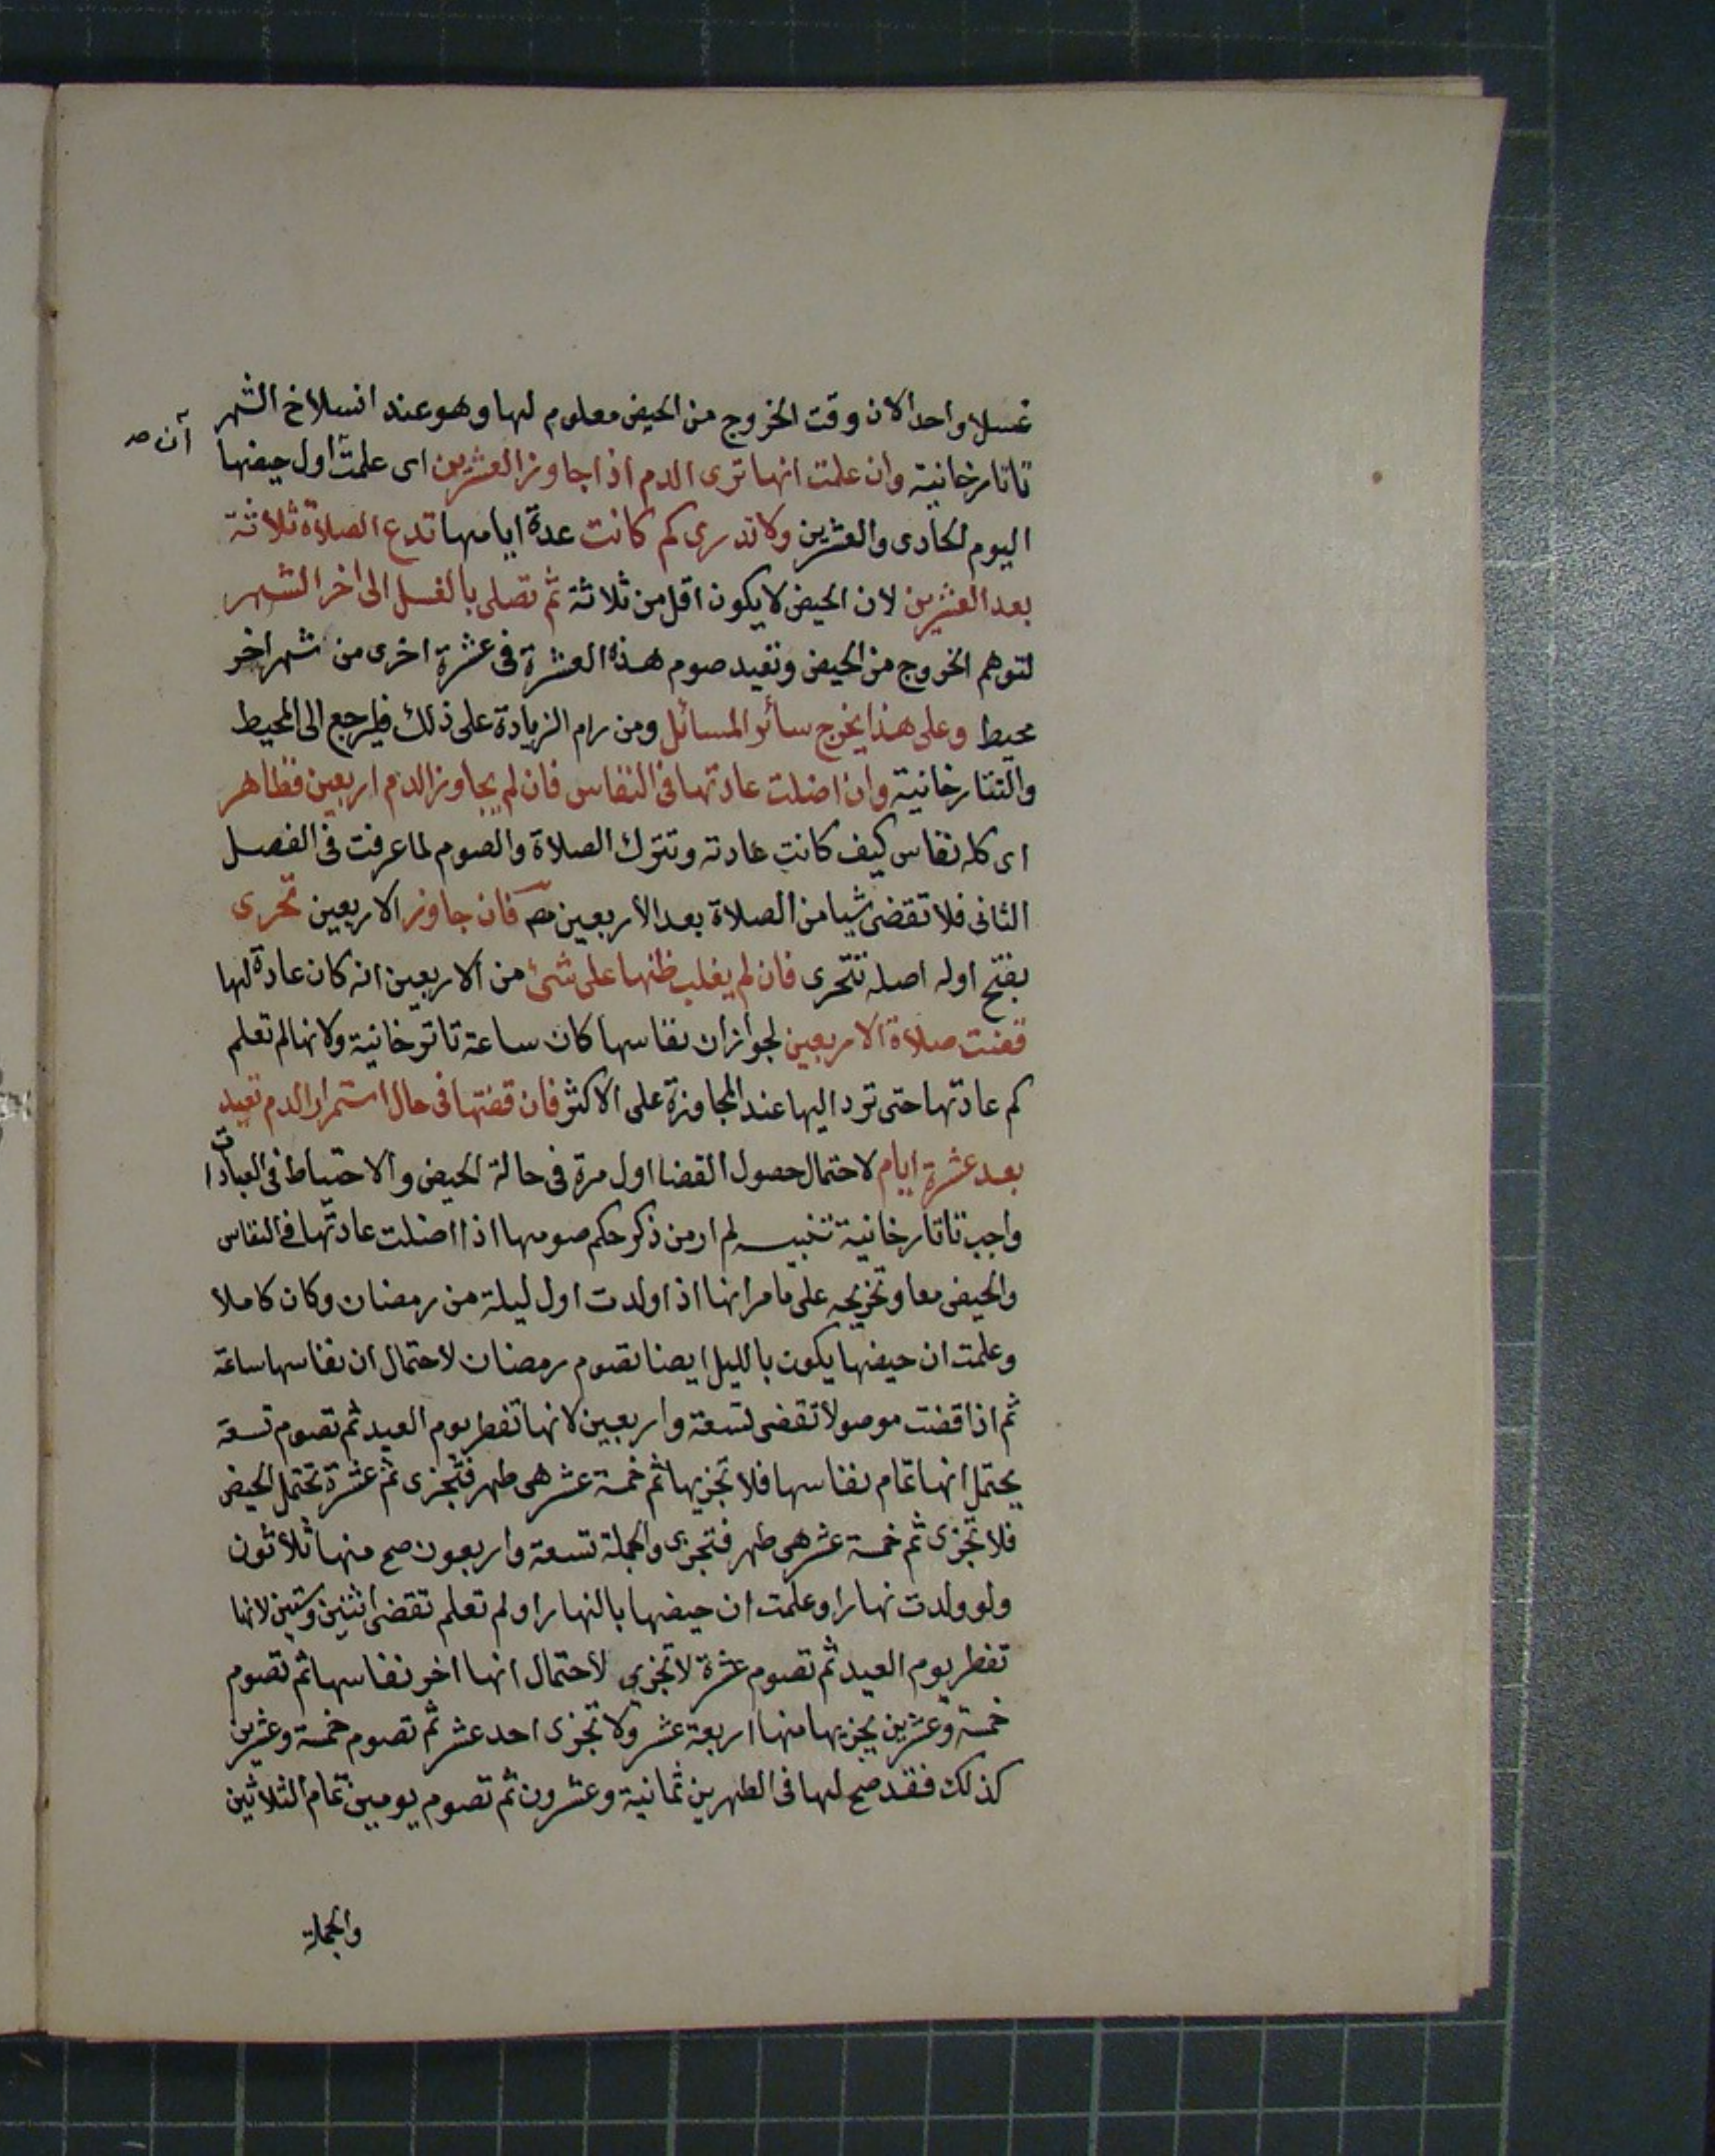 غسلا واحدا لان وقت الخروج من الحيض معلوم لها وهو عند انسلاخ الشهر
آن صـ
تاتارخانية وان علمت انها ترى الدم اذا جاوز العشرين اى علمت اول حيضها
اليوم الحادى والعشرين ولا تدرى كم كانت عدة ايامها تدع الصلاة ثلاثة
بعد العشرين لان الحيض لا يكون اقل من ثلاثة ثم تصلى بالغسل الى اخر الشهر
لتوهم الخروج من الحيض وتعيد صوم هذه العشرة فى عشرة اخرى من شهر اخر
محيط وعلى هذا يخرج سائر المسائل ومن رام الزيادة على ذلك فليرجع الى المحيط
والتتارخانية وان اضلت عادتها فى النفاس فان لم يجاوز الدم اربعين فظاهر
اى كله نفاس كيف كانت عادته وتترك الصلاة والصوم لما عرفت فى الفصل
الثانى فلا تقضى شيا من الصلاة بعد الاربعين مص فان جاوز الاربعين تحرى
بفتح اوله اصله تتحرى فان لم يغلب ظنها على شئ من الاربعين انه كان عادة لها
قضت صلاة الاربعين لجواز ان نفاسها كان ساعة تاترخانية ولانها لم تعلم
كم عادتها حتى ترد اليها عند المجاوزة على الاكثر فان قضتها فى حال استمرار الدم تعيد
بعد عشرة ايام لاحتمال حصول القضا اول مرة فى حالة الحيض والاحتياط فى العبادات
واجب تاتارخانية تنبيه لم ار من ذكر حكم صومها اذا اضلت عادتها فى النفاس
والحيض معا وتخريجه على ما مر انها اذا ولدت اول ليلة من رمضان وكان كاملا
وعلمت ان حيضها يكون بالليل ايضا تصوم رمضان لاحتمال ان نفاسها ساعة
ثم اذا قضت موصولا تقضى تسعة واربعين لانها تفطر يوم العيد ثم تصوم تسعة
يحتمل انها تمام نفاسها فلا تجزيها ثم خمسة عشر هى طهر فتجزى ثم عشرة تحتمل الحيض
فلا تجزى ثم خمسة عشر هى طهر فتجزى والجملة تسعة واربعون صح منها ثلاثون
ولو ولدت نهارا وعلمت ان حيضها بالنهار او لم تعلم تقضى اثنين وستين لانها
تفطر يوم العيد ثم تصوم عشرة لا تجزى لاحتمال انها اخر نفاسها ثم تصوم
خمسة وعشرين يجزيها منها اربعة عشر ولا تجزى احد عشر ثم تصوم خمسة وعشرين
كذلك فقد صح لها فى الطهرين ثمانية وعشرون ثم تصوم يومين تمام الثلاثين
والجملة